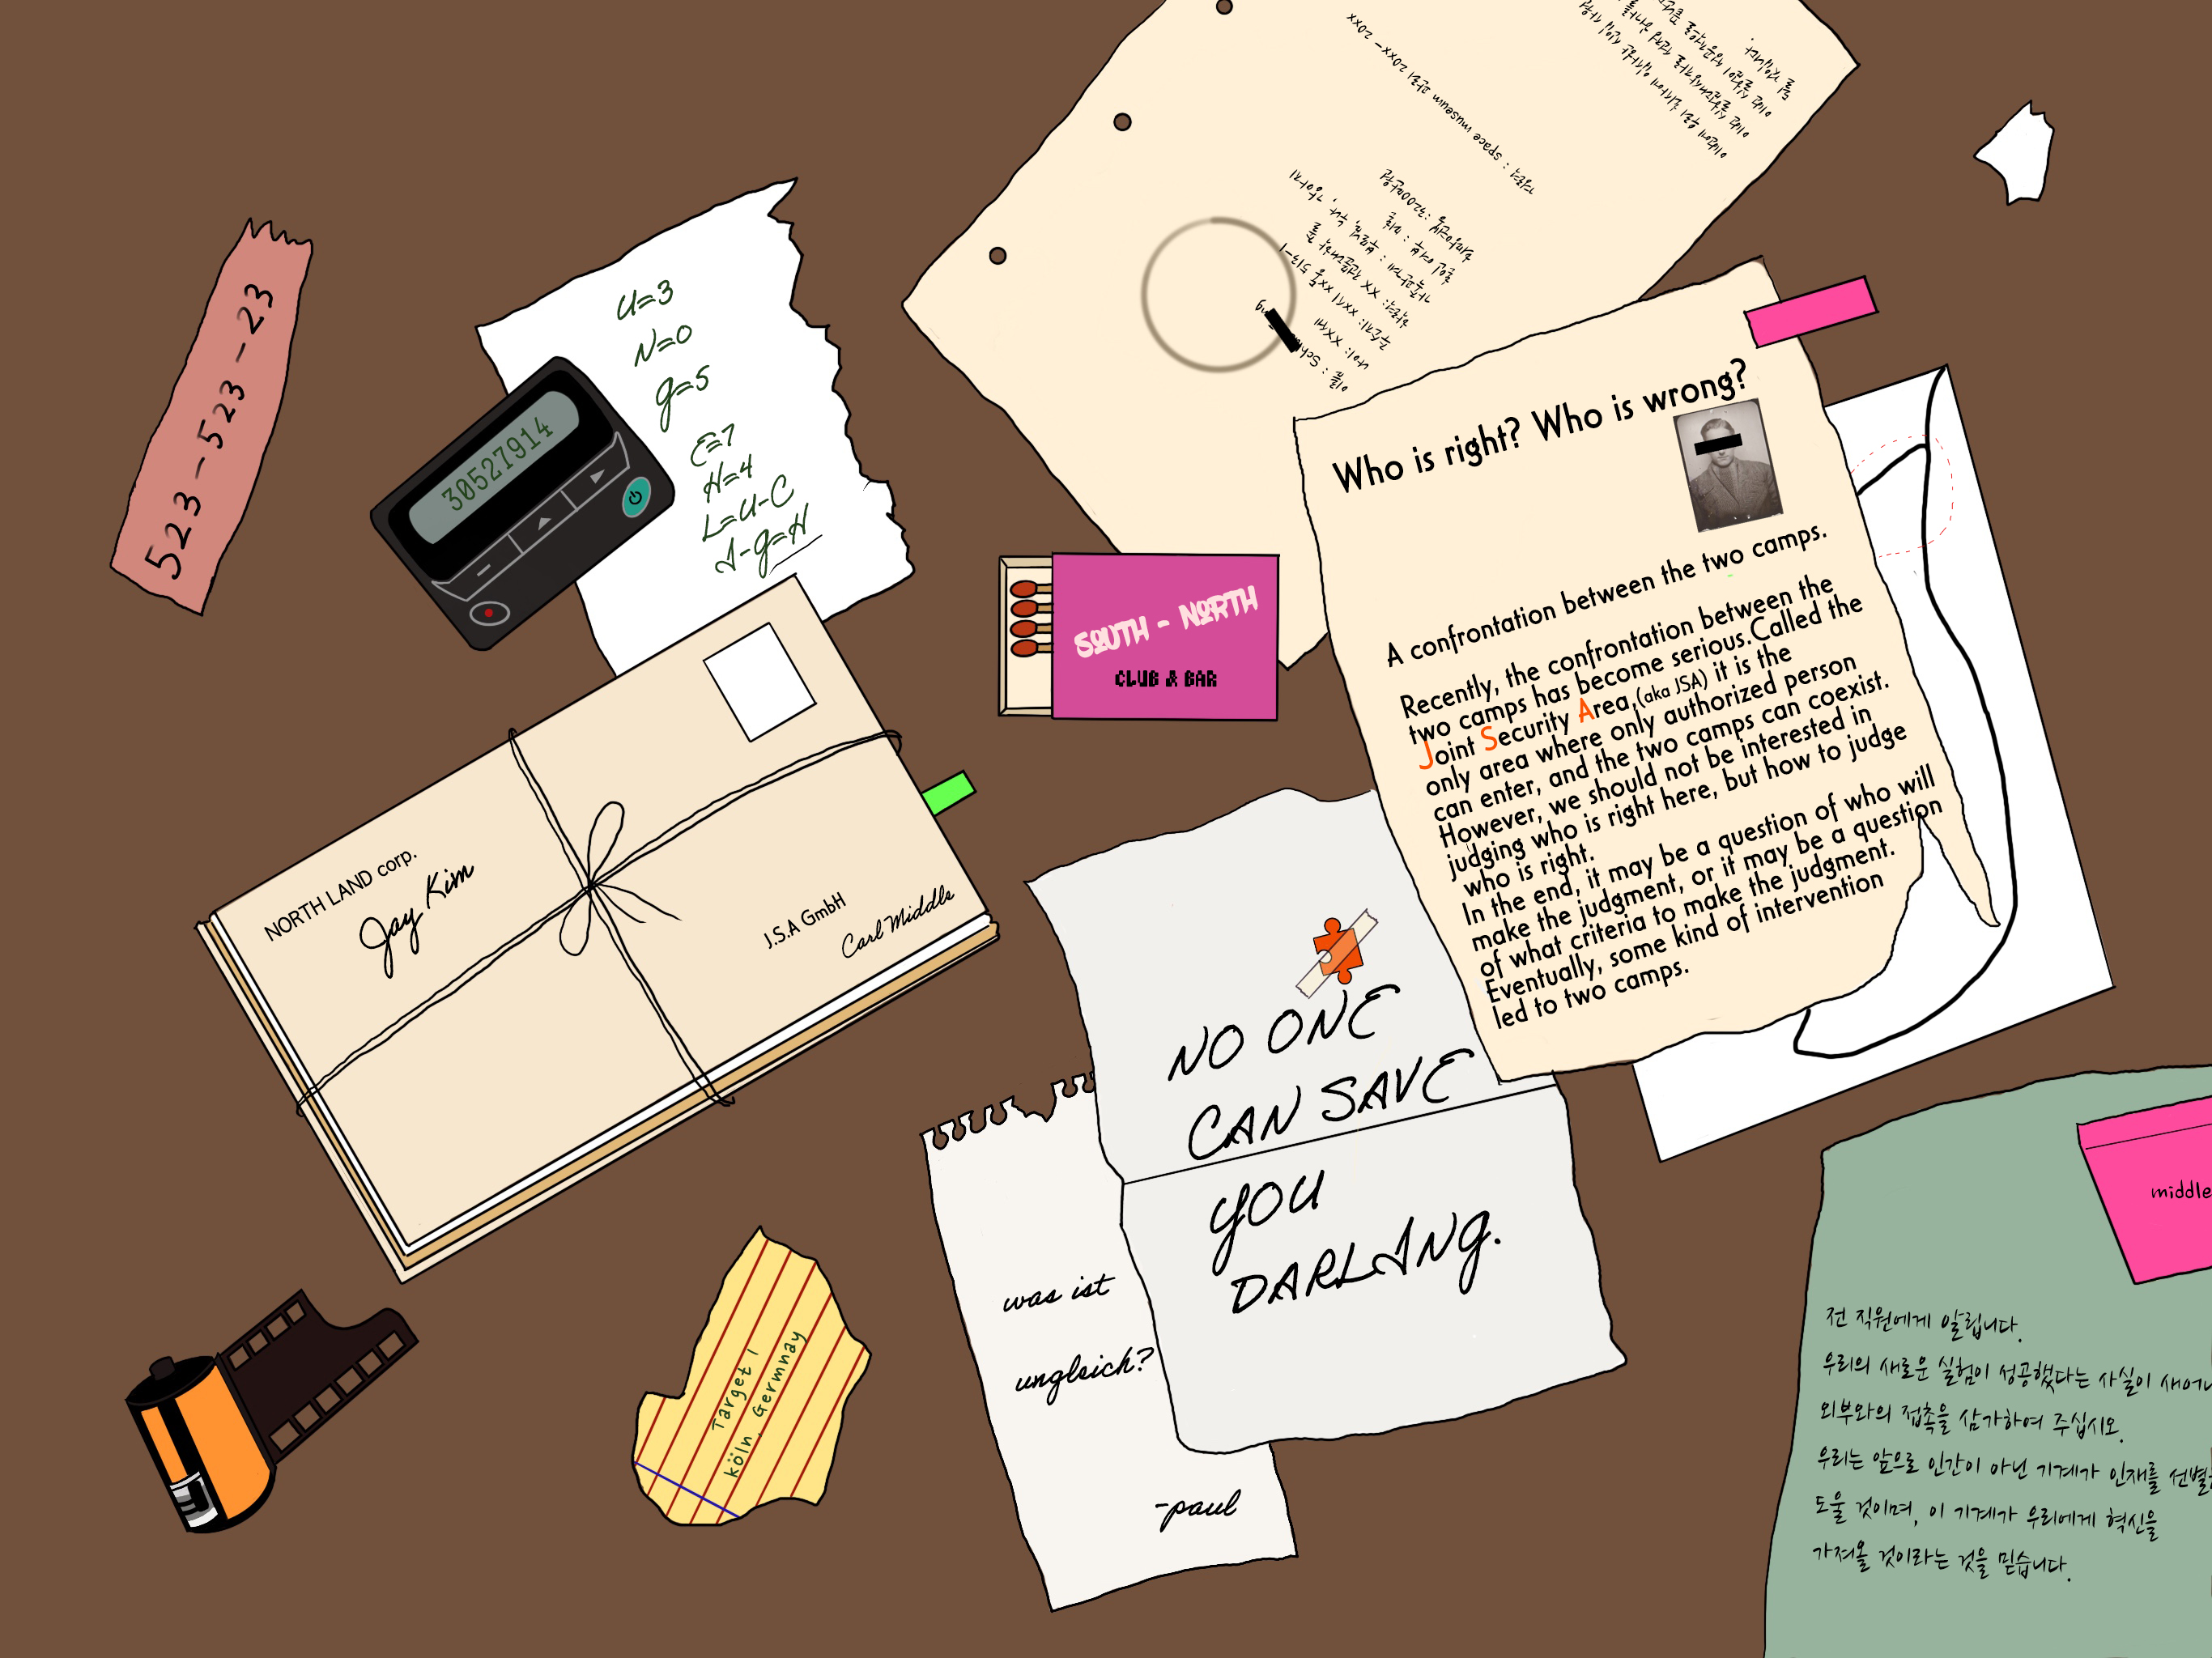 523-523-23
U=3
N=0
g=5
E=7
H=4
L=U-C
J-g=H
30527914
이름 : Sch
ng
나이: XX세
경력 : space museum 관리 20xx - 20xx
SOUTH - NORTH
CLUB & BAR
Who is right? Who is wrong?
A confrontation between the two camps.
Recently, the confrontation between the
two camps has become serious.Called the
Joint Security Area,(aka JSA) it is the
only area where only authorized person
can enter, and the two camps can coexist.
However, we should not be interested in
judging who is right here, but how to judge
who is right.
In the end, it may be a question of who will
make the judgment, or it may be a question
of what criteria to make the judgment.
Eventually, some kind of intervention
led to two camps.
NORTH LAND corp.
Jay Kim
J.S.A GmbH
Carl Middle
NO ONE
CAN SAVE
YOU
DARLING.
was ist
ungleich?
-paul
Target 1
köln, Germnay
middle
전 직원에게 알립니다.
우리의 새로운 실험이 성공했다는 사실이 새어나
외부와의 접촉을 삼가하여 주십시오.
우리는 앞으로 인간이 아닌 기계가 인재를 선별
도울 것이며, 이 기계가 우리에게 혁신을
가져올 것이라는 것을 믿습니다.